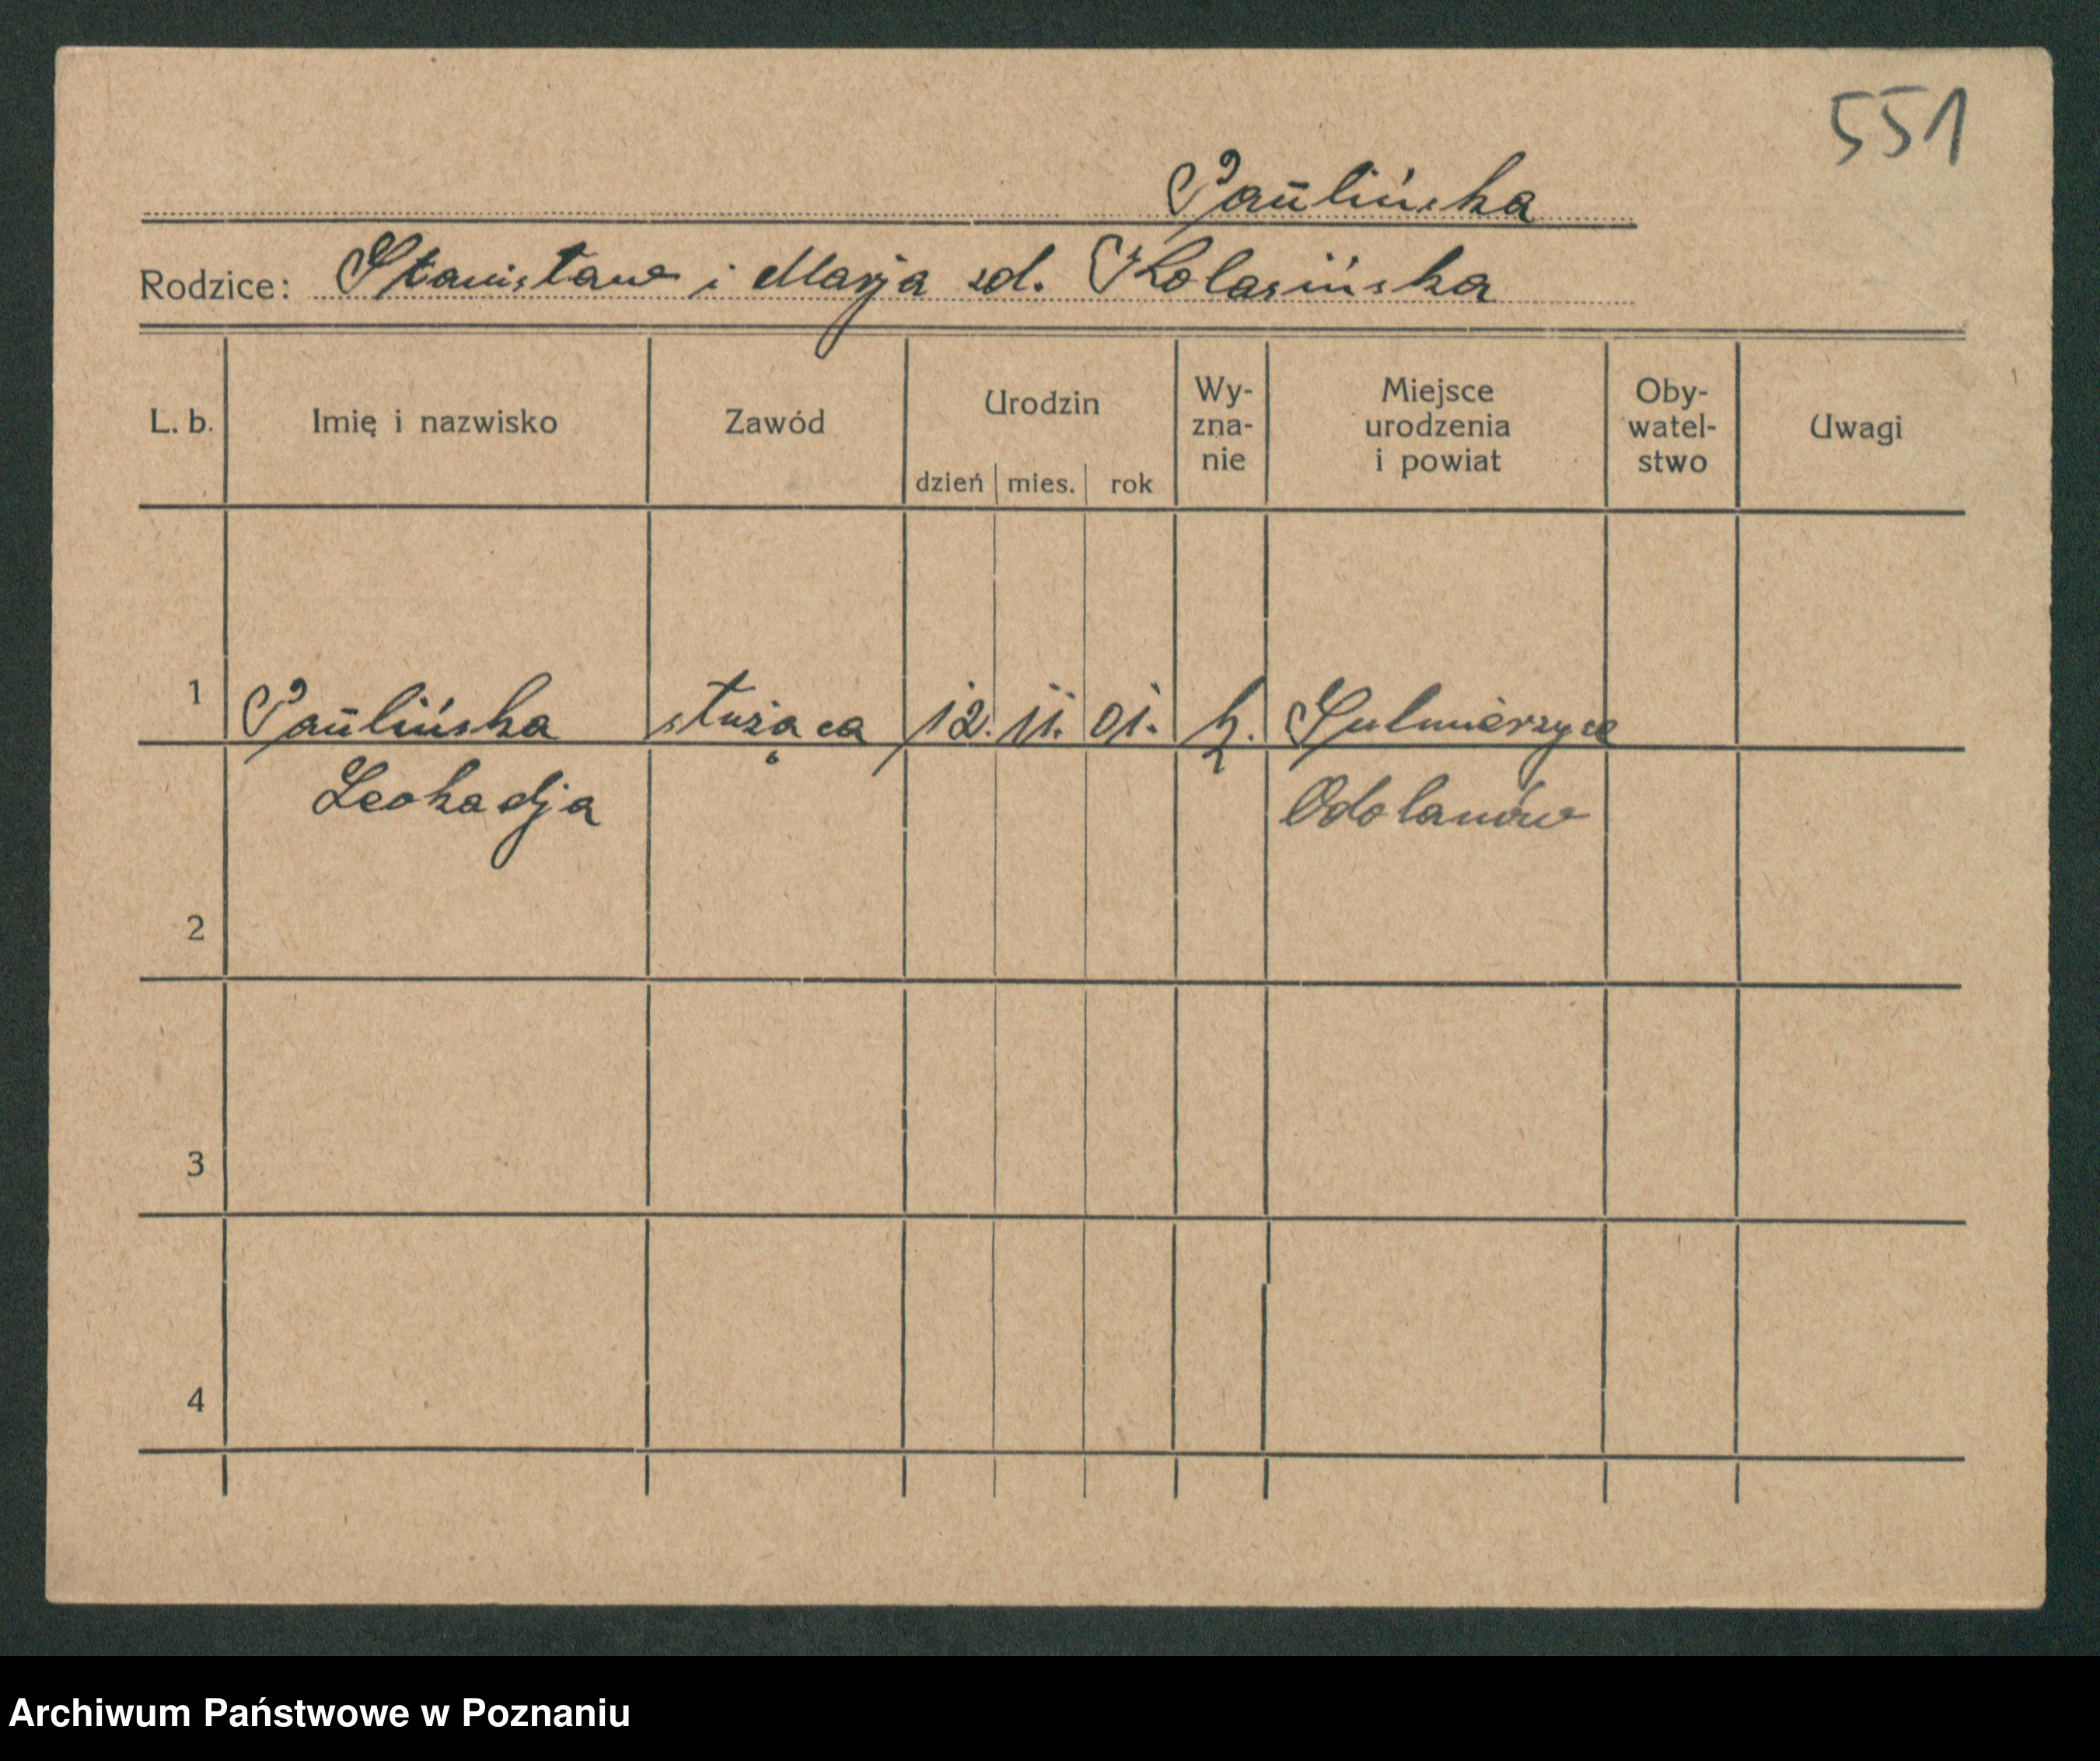 551
Paulińska
Rodzice: Stanisław i Marja zd. Kolasińska
L. b. Imię i nazwisko Zawód Urodzin dzień mies. rok Wy-zna-nie Miejsce urodzenia i powiat Oby-watel-stwo Uwagi
1 Paulińska służąca 12. 11. 01. k. Sulmierzyce
Leokadja Odolanów
2
3
4
Archiwum Państwowe w Poznaniu